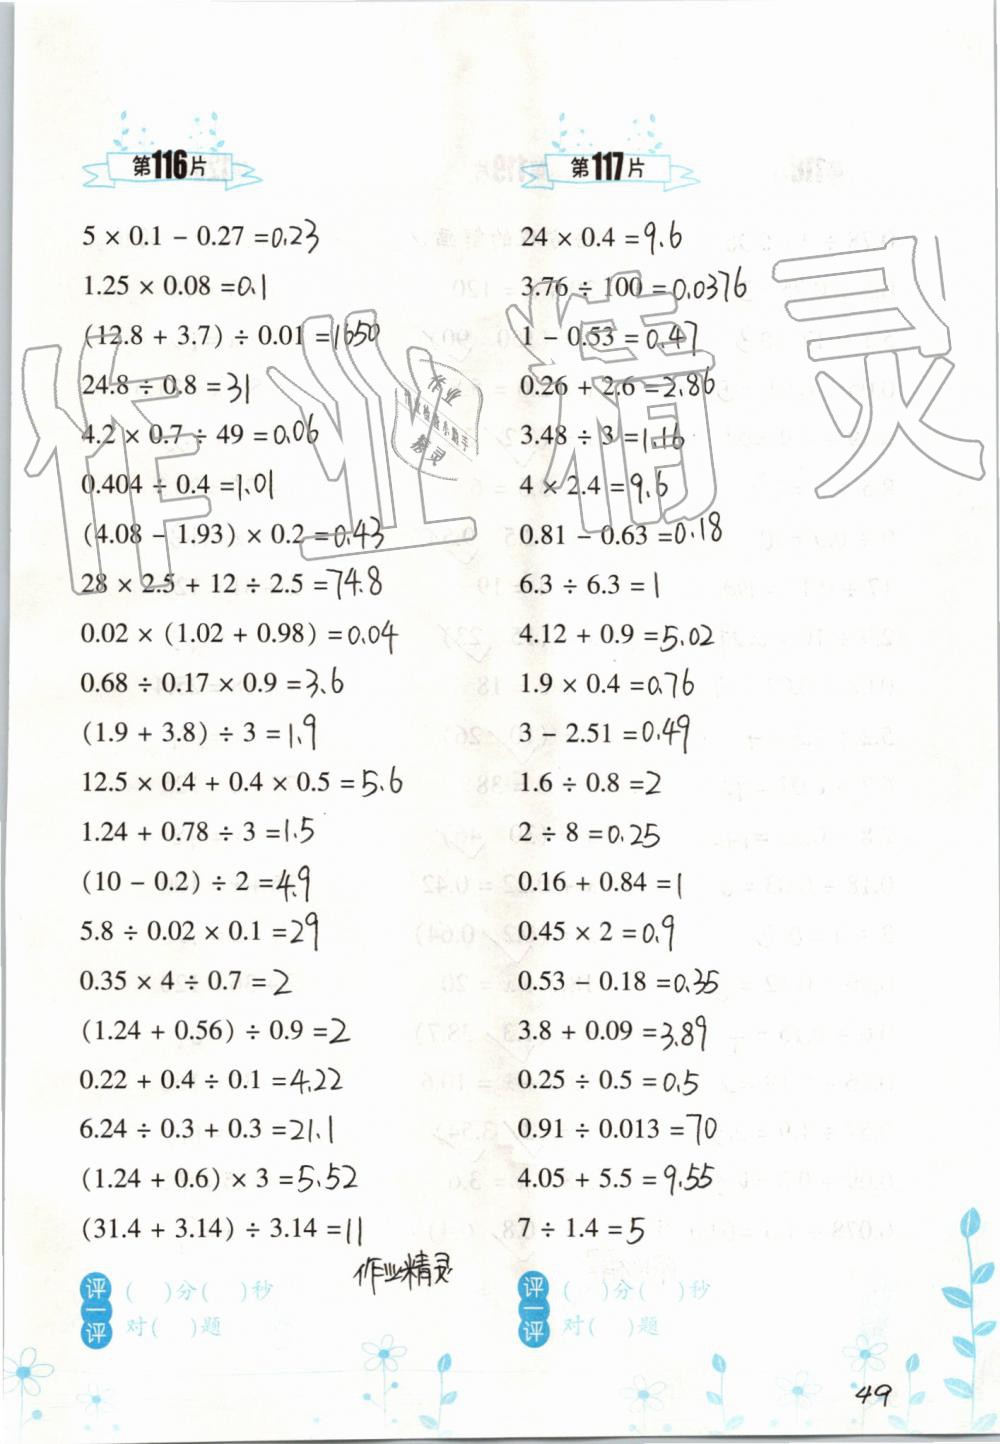 第116片
5 × 0.1 − 0.27 =0.23
1.25 × 0.08 =0.1
(12.8 + 3.7) ÷ 0.01 =1650
24.8 ÷ 0.8 =31
4.2 × 0.7 ÷ 49 =0.06
0.404 ÷ 0.4 =1.01
(4.08 − 1.93) × 0.2 =0.43
28 × 2.5 + 12 ÷ 2.5 =74.8
0.02 × (1.02 + 0.98) =0.04
0.68 ÷ 0.17 × 0.9 =3.6
(1.9 + 3.8) ÷ 3 =1.9
12.5 × 0.4 + 0.4 × 0.5 =5.6
1.24 + 0.78 ÷ 3 =1.5
(10 − 0.2) ÷ 2 =4.9
5.8 ÷ 0.02 × 0.1 =29
0.35 × 4 ÷ 0.7 =2
(1.24 + 0.56) ÷ 0.9 =2
0.22 + 0.4 ÷ 0.1 =4.22
6.24 ÷ 0.3 + 0.3 =21.1
(1.24 + 0.6) × 3 =5.52
(31.4 + 3.14) ÷ 3.14 =11
作业精灵
评一评
( )分( )秒
对( )题
第117片
24 × 0.4 =9.6
3.76 ÷ 100 =0.0376
1 − 0.53 =0.47
0.26 + 2.6 =2.86
3.48 ÷ 3 =1.16
4 × 2.4 =9.6
0.81 − 0.63 =0.18
6.3 ÷ 6.3 =1
4.12 + 0.9 =5.02
1.9 × 0.4 =0.76
3 − 2.51 =0.49
1.6 ÷ 0.8 =2
2 ÷ 8 =0.25
0.16 + 0.84 =1
0.45 × 2 =0.9
0.53 − 0.18 =0.35
3.8 + 0.09 =3.89
0.25 ÷ 0.5 =0.5
0.91 ÷ 0.013 =70
4.05 + 5.5 =9.55
7 ÷ 1.4 =5
评一评
( )分( )秒
对( )题
49
作业精灵
作业
精灵